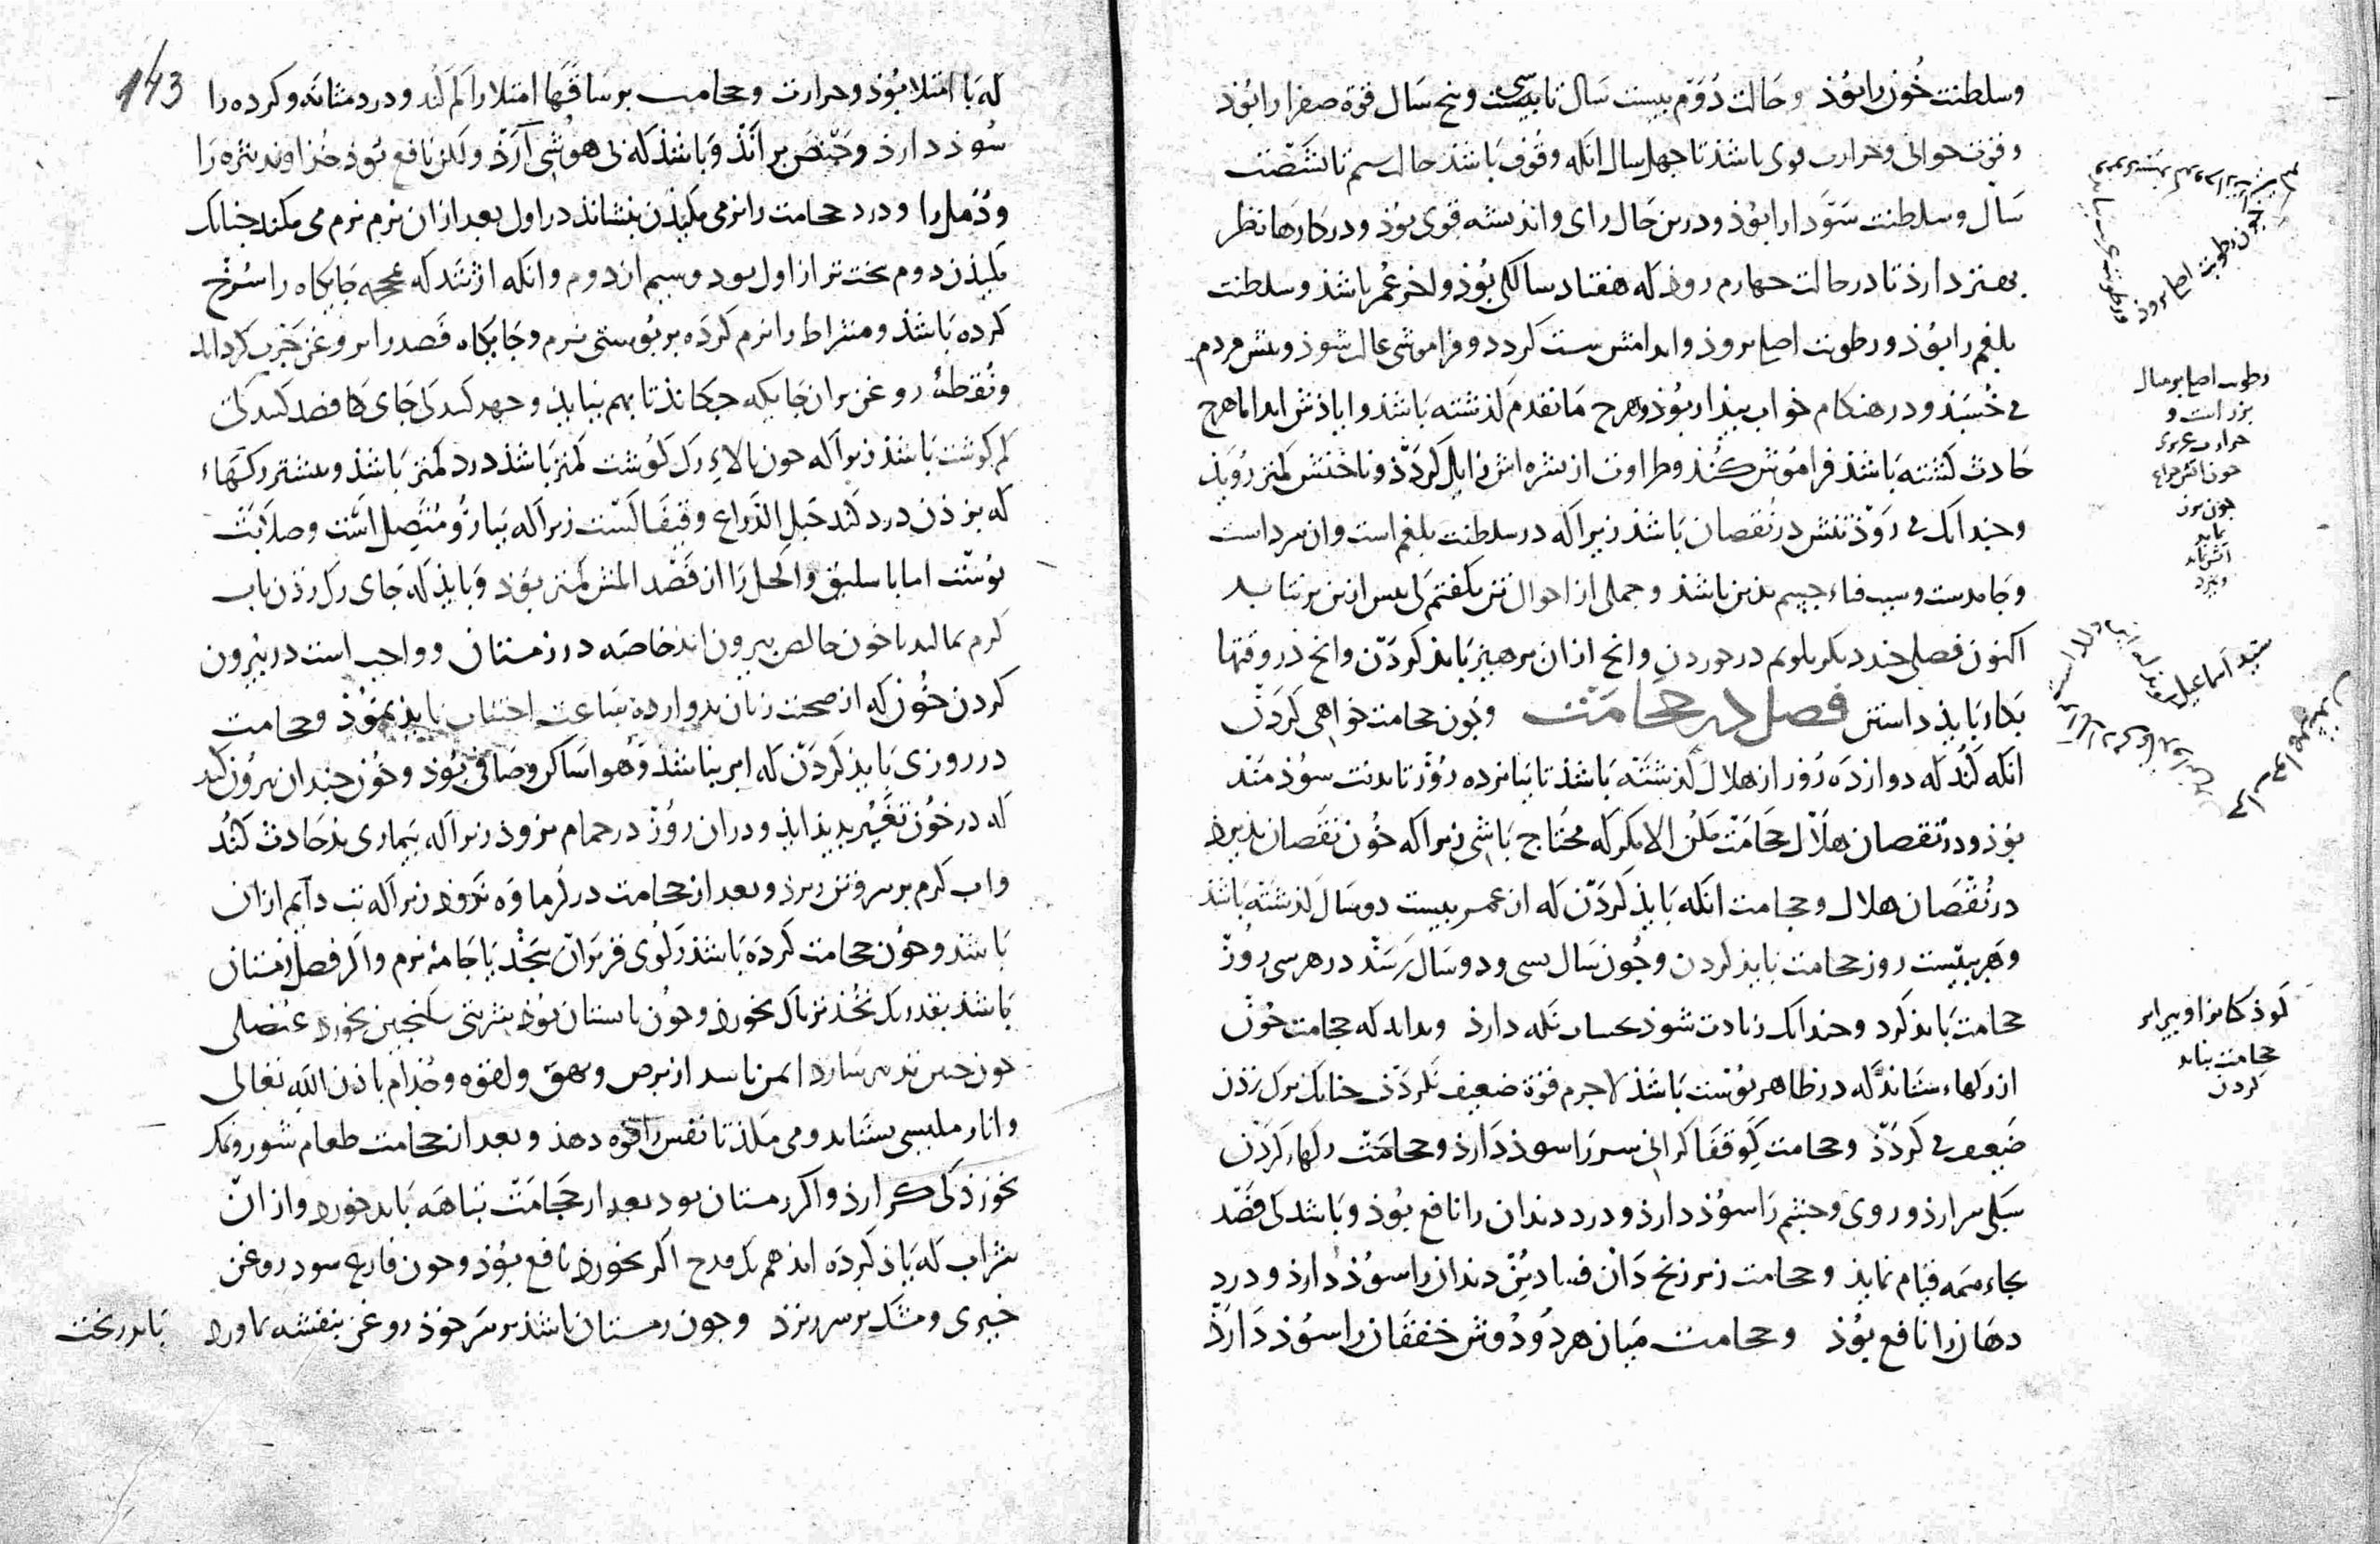 وسلطنت خُون را بوُذ وحَالت دُوَّم بیست سَال تا سی وپنج سَال قوّة صفرا را بوُذ
وقوّت جوانی وحرارت قوی باشذ تا چهل سال انکه وقُوف باشذ حال سیم تا بشصّت
سَال وسلطنت سَوّدا را بوُذ ودرین حَال رای واندیشه قوی بوُذ ودر کارها نظر
بهتر دارذ تا در حالت چهارم روذ که هفتاد سالکی بوُذ واخر عُمر باشذ وسلطنت
بلغم را بوُذ ورطوبت اصلی بروذ واندامش سست کردد وفراموشی غالب شوذ وپیش مردم
می خُسبَذ ودر هنکام خواب بیدار بوُذ وهرچ مَا تقدم کذشته باشذ وا یاذش اید اما هرچ
حَادث کشته باشذ فراموُش کُنذ وطراوت از بشره اش زایل کردّذ وناخنش کمتر رُویَذ
وچندانک می روّذ تنش در نُقصان باشذ زیرا که در سلطنت بلغم است وان سرد است
وجَامدست وسبب فناء جسم بذین باشذ وجملی از احوال تن بکفتم کی پس ازین
اکنون فصلی چند دیکر بکویم در خوردن وانچ ازان پرهیز بَایذ کردّن وانچ در وقتها
بکار بَایذ داشتن فصل در حجَامَت وچون حجامت خواهی کَردَن
انکه کُند که دوازدَه رُوز از هلال کذشته باشذ تا پانزده رُوز تا بدنت سُوذ مَند
بوُذ ودر نقصان هلاَل حجَامَت مکُن الا مکر که محُتاج باشی زیرا که خُون نقصان پذیرذ
در نُقصَان هلال وحجامت انکه بایذ کَردّن که از عمر بیست دو سَال کذشته باشذ
وهر بیست روز حجامت بایذ کردن وچُون سَال بسی ودو سَال رسَذ در هر سی رُوز
حجامت بایذ کرد وچندانک زیادت شوذ بحساب نکه دارذ وبداند که حجامت خُون
از رکهاء ستاند که در ظاهر پوُست باشذ لاجرم قوّة ضعیف نکردّذ چنانک برک زذن
ضَعیف می کردّذ وحجامت کَوقفا کرانی سر را سوذ دارذ وحجامت رکهاء کردَن
سَبکی سر ارذ وروی وچشم را سوُذ دارذ ودرد دندان را نافع بوُذ وبَاشد کی فصّد
بجاء همه قیام نمایذ وحجامت زیر زنخ دَان فساد بُن دندان را سوُذ دارذ ودرد
دهَان را نافع بوُذ وحجامت میَان هر دُو دُوش خفقان را سوُذ دارّذ
رطوبت اصلی بر مثال
بزر است و
حرارت غریزی
چون اتش چراغ
چون بزر
نماند
اتش نماند
وبمیرد
سید اسماعیل
کوذکانرا وپیرانرا
حجامت نباید
کردن
143
که با امتلا بوُذ وحرارت وحجامت بر سَاقهَا امتلا را کم کُند ودرد مثانه وکرده را
سُوذ دارذ وحیض براَنذ وبَاشذ که بی هوُشی آرَذ ولکن نافع بوُذ خُذاوند بثره را
ودُمَل را ودرد حجامت را نرمی مکیذن بنشاند در اول بعد ازان نرم نرم می مکند چنانک
مکیذن دوم سخت تر از اول بود وسیم از دوم وانکه اژند که محجمه جَایکاه را سُرخ
کرده بَاشذ ومشراط را نرم کردَه بر پوستی نرم وجَایکاه فصد را بروغن چَرب کرداند
ونُقطهٔ روغن بران جَایکه چکاند تا بهم نیایذ وجهد کند کی جَای هَا فصد کند کی
کم کوشت بَاشذ زیرا که چون بالاءِ رک کوُشت کمتر باشذ درد کمتر بَاشذ وبیشتر رکهَاء
که بزذن درد کند حَبل الذراع وقیفا لست زیرا که ببَازوُ مُتّصِل است وصلاَبَت
پوست اما باسلیق واکحل را از قَصد المش کمتر بوُذ وبایذ که جَای رک زذن باب
کرم بمالند تا خون خالص بیرون اید خاصّه در زمستان وواجب است در بیرون
کردن خُون که از صحبت زنان بدوازده سَاعت اجتناب بایذ نموُذ وحجامت
در روزی بَایذ کَردَن که ابر نباشذ وهَوا سَاکن وصَافی بوُذ وخُون چندان بیرُون کند
که در خُون تَغَیُّر پدیذ ایذ ودران رُوز در حمام نروذ زیرا که بیماری بد حَادث کُند
واب کرم بر سر وتن نریزد وبعد از حجامت در کرماوه نَروذ زیرا که تب دآیم ازان
بَاشذ وچُون حجامت کَردَه بَاشذ رکوی فربرآن سَخْذ بَا جَامهٔ نرم واکر فصل زمستان
بَاشذ بقدر یک نخُذ تریاک بخورذ وچُون تابستان بوُذ شربتی سکنجبین بخورد عنصلی
چون چنین ایمن باشد از برص وبهق ولقوه وجُذام باذن الله تعالی
وانار ملیسی بستاند ومی مکذ تا نفس را قوّه دهذ وبعد از حجامت طعام شور ونمک
نخورذ کی کر ارذ واکر زمستان بود بعد از حجَامَت تباهَه بَاید خورد وازان
شراب که یاذ کردَه ایذ هم یک قدح اکر بخورد نافع بوُذ وچون فارغ شود روغن
خیری ومشک بر سر ریزذ وچون زمستان باشذ بر سَر خوذ روغن بنفشه
باید ریخت